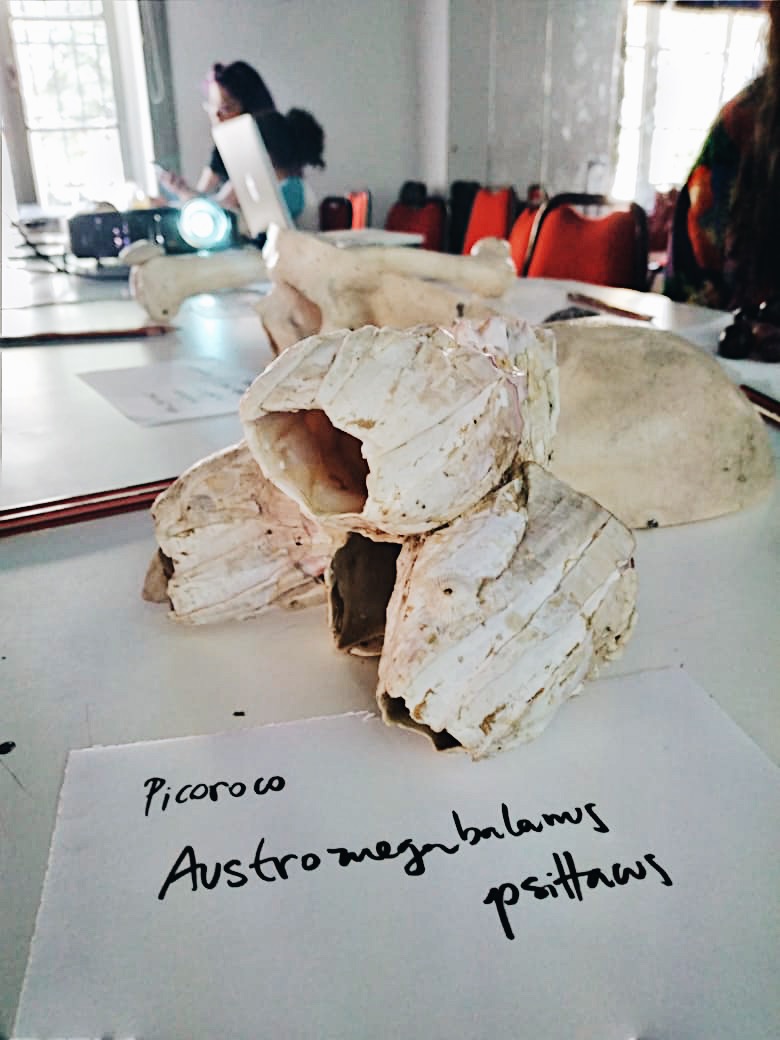 Picoroco
Austromegabalanus
psittacus